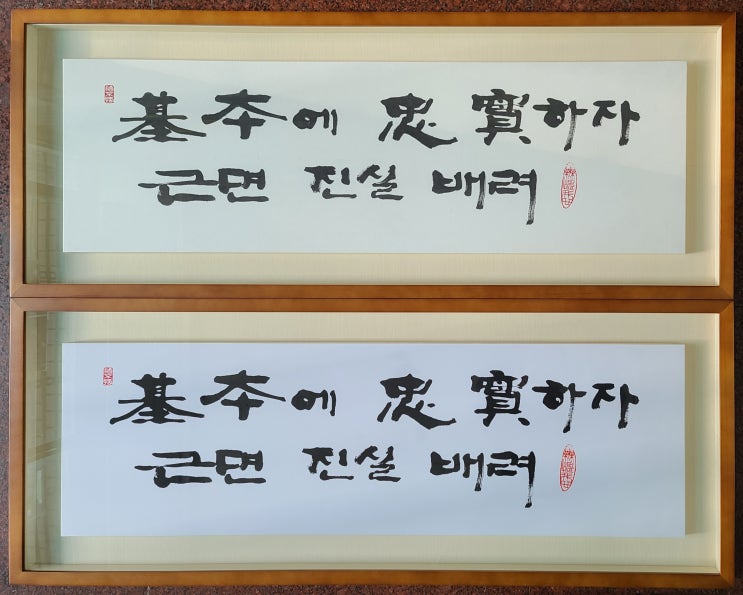 基本에 忠實하자
근면 진실 배려
基本에 忠實하자
근면 진실 배려